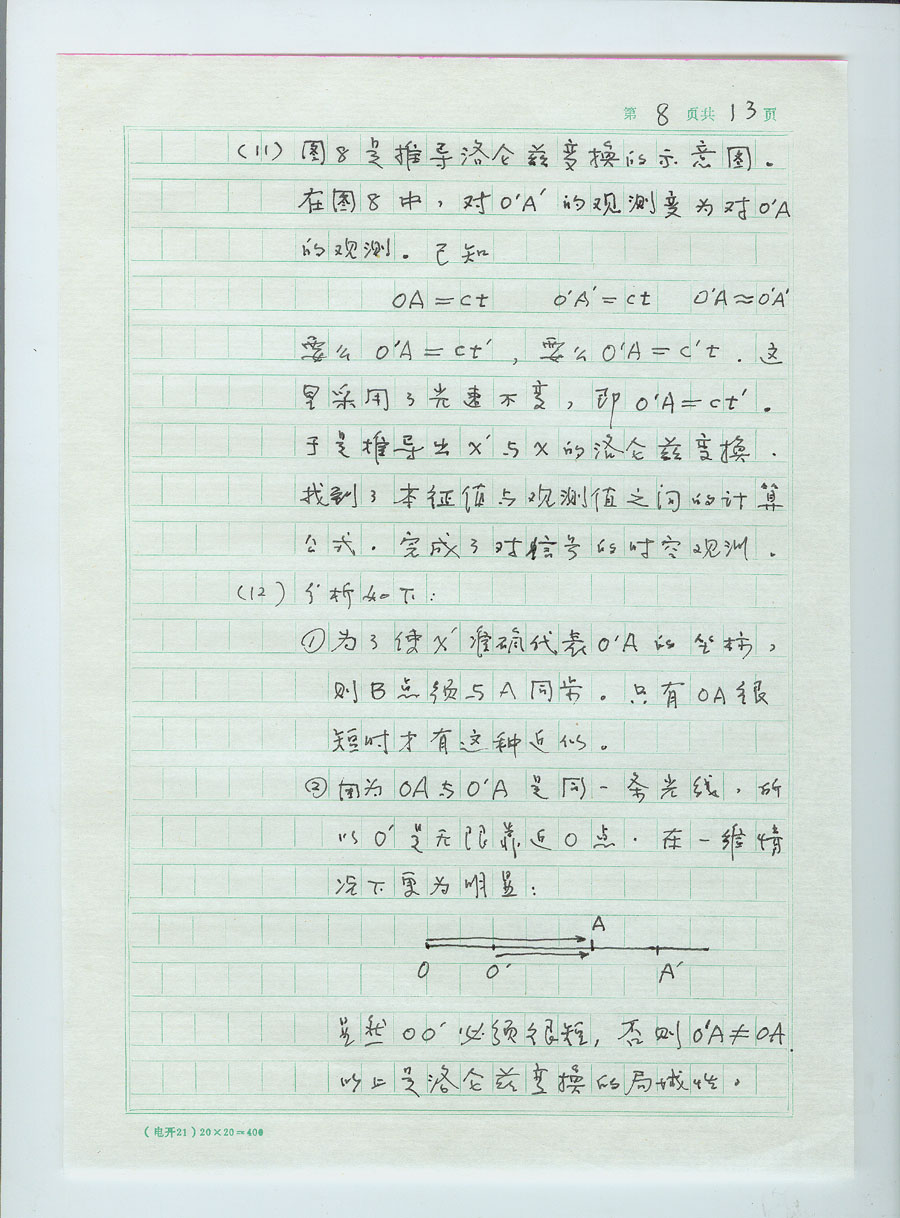 第 8 页共 13 页
(11) 图8是推导洛仑兹变换的示意图。
在图8中，对O'A'的观测变为对O'A
的观测。已知
OA=ct O'A'=ct O'A≈O'A'
要么O'A=ct'，要么O'A=c't．这
里采用了光速不变，即O'A=ct'。
于是推导出x'与x的洛仑兹变换．
找到了本征值与观测值之间的计算
公式．完成了对信号的时空观测．
(12) 分析如下：
①为了使x'准确代表O'A的坐标，
则B点须与A同步。只有OA很
短时才有这种近似。
②因为OA与O'A是同一条光线，所
以O'是无限靠近O点．在一维情
况下更为明显：
A
O O' A'
显然OO'必须很短，否则O'A≠OA．
以上是洛仑兹变换的局域性．
(电开21)20×20=400